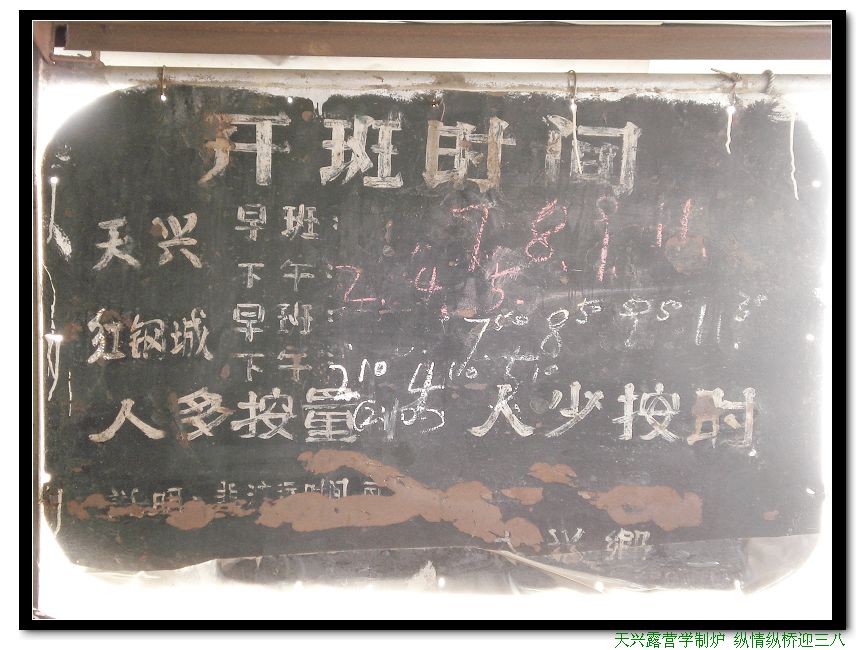 开班时间
天兴 早班: 7. 8. 9. 11.
下午: 2. 4. 5.
红钢城 早班: 7 50 8 50 9 50 11 30
下午: 2 10 4 10 5 10
人多按量 (2:10) 人少按时
说明:
兴乡
天兴露营学制炉 纵情纵桥迎三八